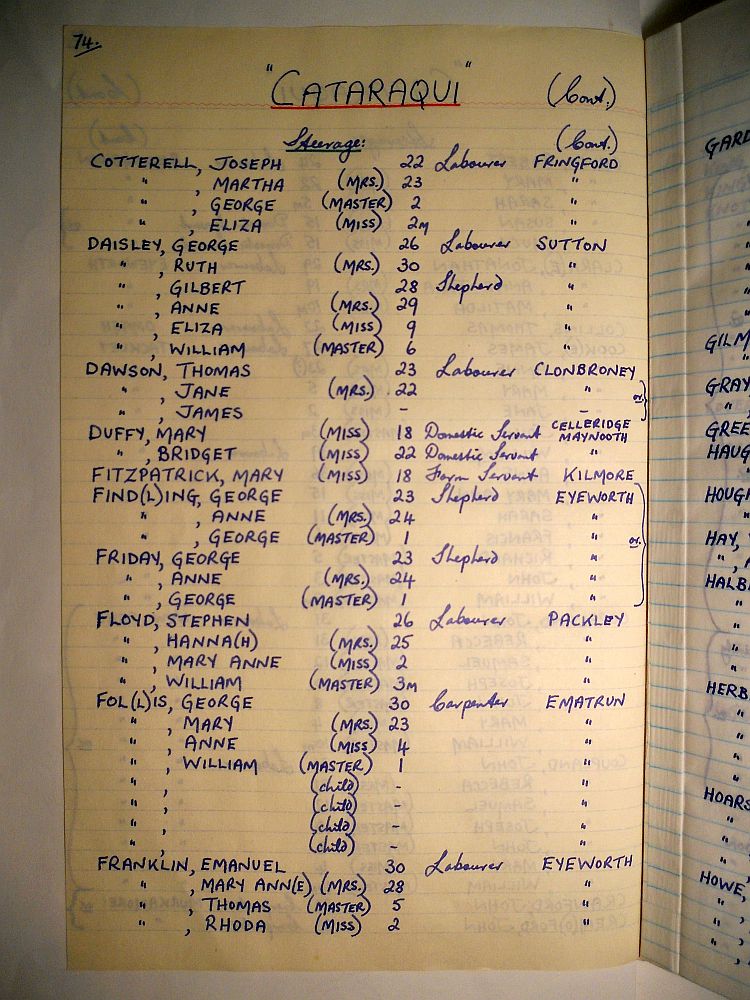 74.
"CATARAQUI" (Cont.)
Steerage: (Cont.)
COTTERELL, JOSEPH 22 Labourer FRINGFORD
" , MARTHA (MRS.) 23 "
" , GEORGE (MASTER) 2 "
" , ELIZA (MISS) 2m "
DAISLEY, GEORGE 26 Labourer SUTTON
" , RUTH (MRS.) 30 "
" , GILBERT 28 Shepherd "
" , ANNE (MRS.) 29 "
" , ELIZA (MISS) 9 "
" , WILLIAM (MASTER) 6 "
DAWSON, THOMAS 23 Labourer CLONBRONEY
" , JANE (MRS.) 22 " or
" , JAMES - -
DUFFY, MARY (MISS) 18 Domestic Servant CELLERIDGE MAYNOOTH
" , BRIDGET (MISS) 22 Domestic Servant "
FITZPATRICK, MARY (MISS) 18 Farm Servant KILMORE
FIND(L)ING, GEORGE 23 Shepherd EYEWORTH
" , ANNE (MRS.) 24 "
" , GEORGE (MASTER) 1 " or
FRIDAY, GEORGE 23 Shepherd "
" , ANNE (MRS.) 24 "
" , GEORGE (MASTER) 1 "
FLOYD, STEPHEN 26 Labourer PACKLEY
" , HANNA(H) (MRS.) 25 "
" , MARY ANNE (MISS) 2 "
" , WILLIAM (MASTER) 3m "
FOL(L)IS, GEORGE 30 Carpenter EMATRUN
" , MARY (MRS.) 23 "
" , ANNE (MISS) 4 "
" , WILLIAM (MASTER) 1 "
" , (child) - "
" , (child) - "
" , (child) - "
" , (child) - "
FRANKLIN, EMANUEL 30 Labourer EYEWORTH
" , MARY ANN(E) (MRS.) 28 "
" , THOMAS (MASTER) 5 "
" , RHODA (MISS) 2 "
GARD
GILM
GRAY
GREE
HAUG
HOUG
HAY,
HALB
HERB
HOARS
HOWE,